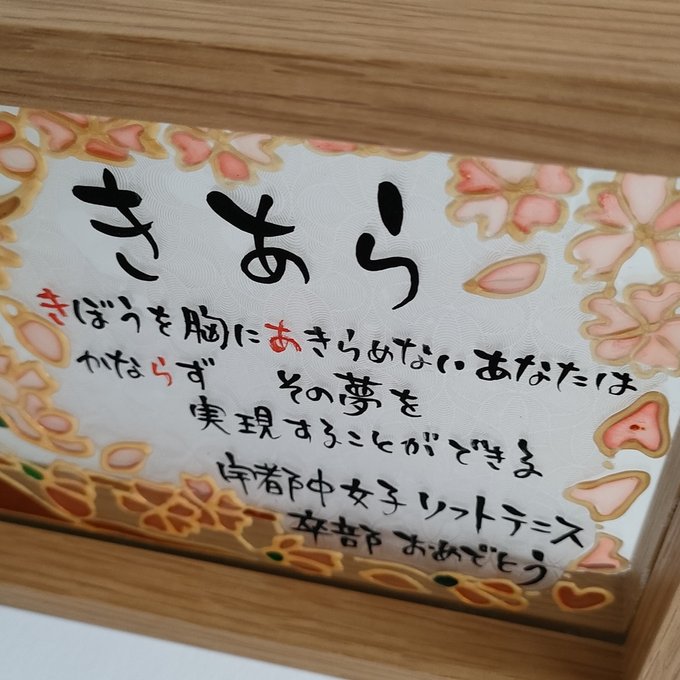 きあら
きぼうを胸にあきらめないあなたは
かならず その夢を
実現することができる
宇都中女子ソフトテニス
卒部おめでとう